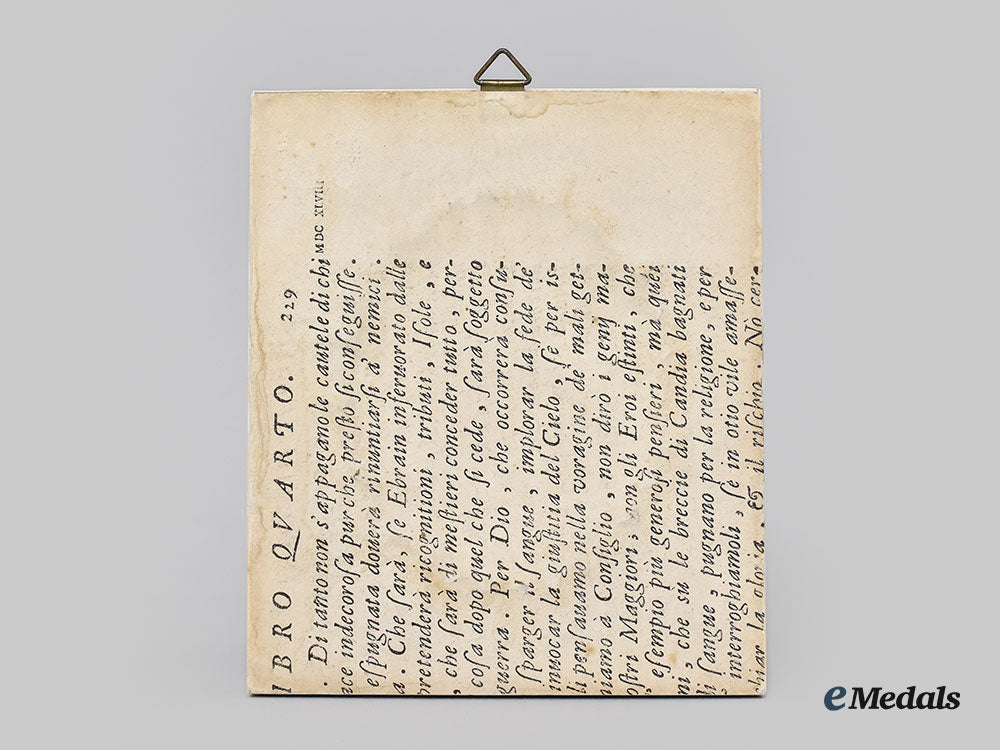 IBRO QVARTO. 229
. Di tanto non s'appagamo le cautele di chi MDC XLVIII
ace indecorosa pur che presto si conseguisse.
espugnata douerà rinuntiarsi a' nemici.
a. Che sarà, se Ebrain inferuorato dalle
pretenderà ricognitioni, tributi, Isole, e
, che sarà di mestieri conceder tutto, per-
cosa dopo quel che si cede, sarà soggetto
guerra. Per Dio, che occorrerà consu-
sparger il sangue, implorar la fede de'
inuocar la giustitia del Cielo, se per is-
li pensauamo nella voragine de' mali get-
niamò à Consiglio, non dirò i genÿ ma-
ostri Maggiori; non gli Eroi estinti, che
esempio più generosi pensieri, ma quei
ni, che su le breccie di Candia bagnati
li sangue, pugnano per la religione, e per
interroghiamoli, se in otio vile amasse-
biar la gloria, & il rischio. No cer-
eMedals